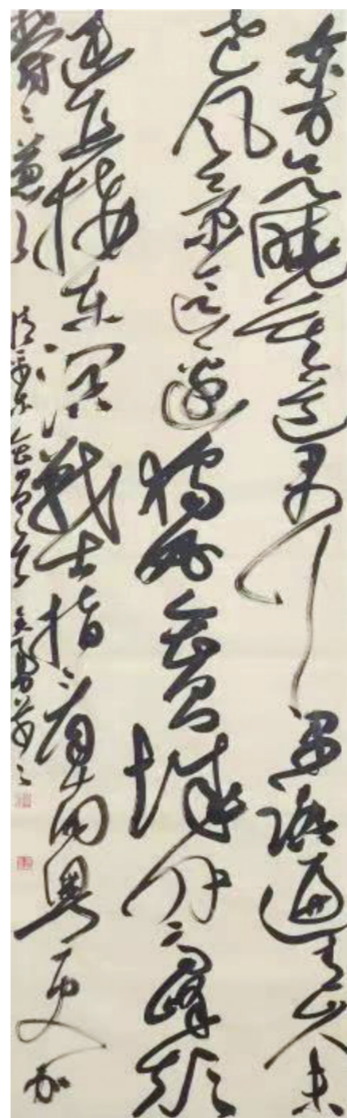 东方欲晓莫道君行早踏遍青山人未
老风景这边独好会昌城外高峰颠
连直接东溟戰士指看南粤更加
鬱々葱々 清平乐会昌